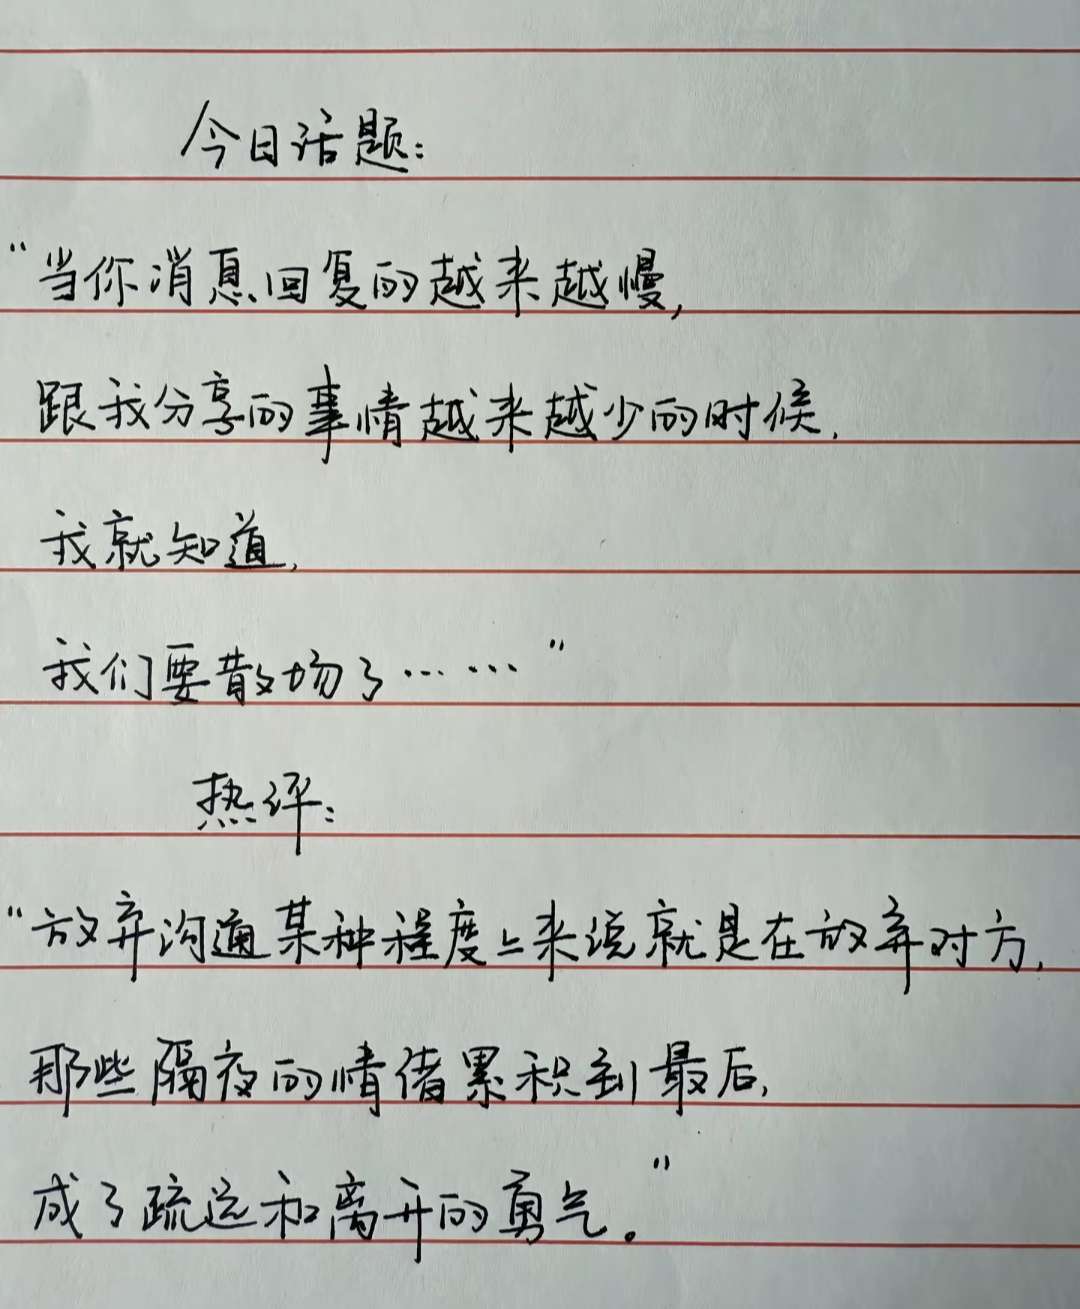 今日话题:
“当你消息回复的越来越慢,
跟我分享的事情越来越少的时候,
我就知道,
我们要散场了……”
热评:
“放弃沟通某种程度上来说就是在放弃对方,
那些隔夜的情借累积到最后,
成了疏远和离开的勇气。”